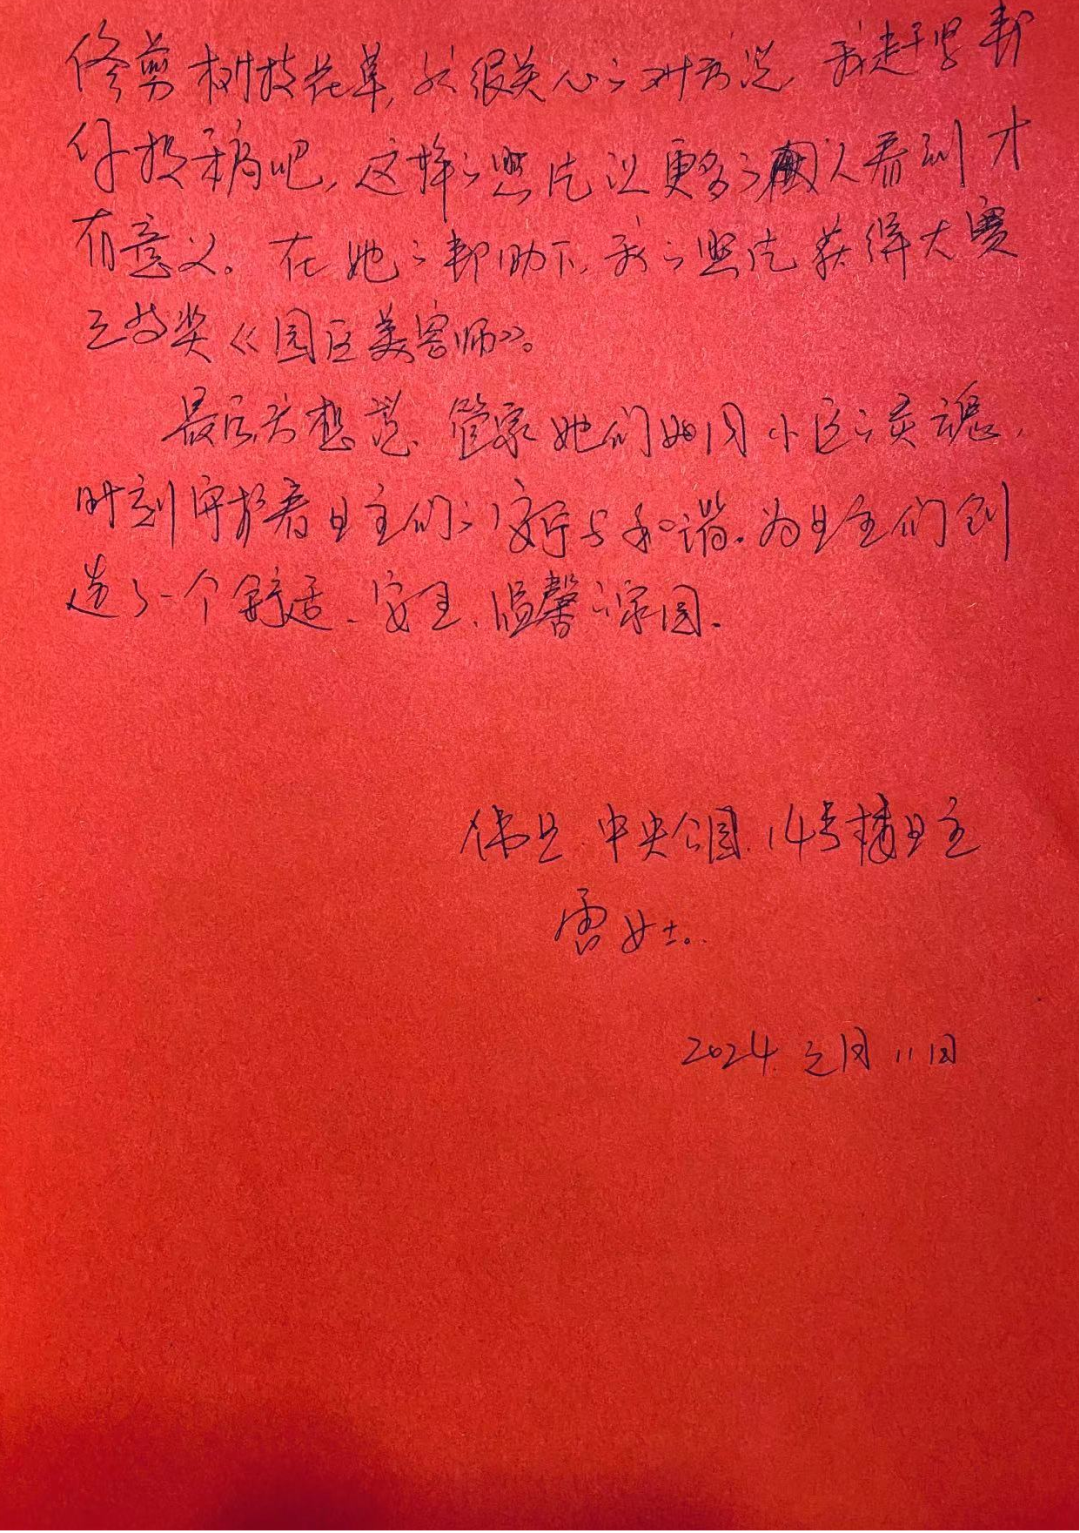 修剪树枝花草，她很关心的对我说，我赶紧帮
你投稿吧，这样的照片让更多的人看到才
有意义。在她的帮助下，我的照片获得大赛
三等奖《园区美容师》。
最后我想说，管家她们如同小区的灵魂，
时刻守护着业主们的安宁与和谐。为业主们创
造了一个舒适、安全、温馨的家园。
伟业 中央公园 14号楼业主
雷女士。
2024 元月11日